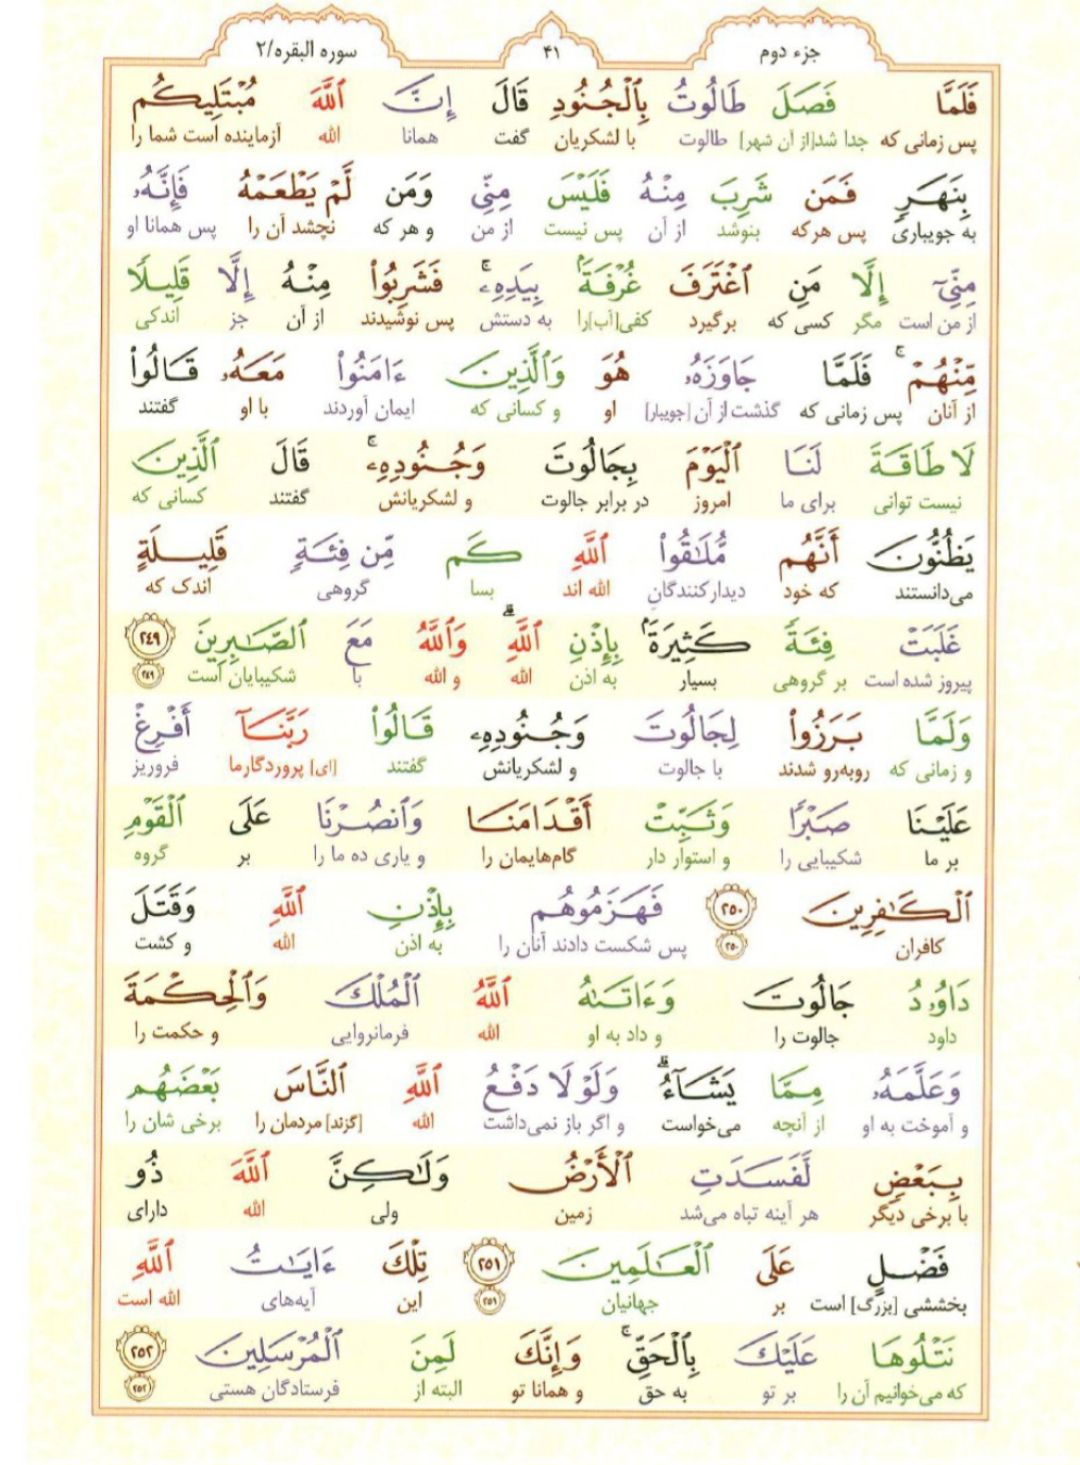 جزء دوم ۴۱ سوره البقره/۲
فَلَمَّا فَصَلَ طَالُوتُ بِٱلْجُنُودِ قَالَ إِنَّ ٱللَّهَ مُبْتَلِيكُم
پس زمانی که جدا شد[از آن شهر] طالوت با لشکریان گفت همانا الله آزماینده است شما را
بِنَهَرٍ فَمَن شَرِبَ مِنْهُ فَلَيْسَ مِنِّي وَمَن لَّمْ يَطْعَمْهُ فَإِنَّهُۥ
به جویباری پس هرکه بنوشد از آن پس نیست از من و هر که نچشد آن را پس همانا او
مِنِّيٓ إِلَّا مَنِ ٱغْتَرَفَ غُرْفَةًۢ بِيَدِهِۦۚ فَشَرِبُوا۟ مِنْهُ إِلَّا قَلِيلًا
از من است مگر کسی که برگیرد کفی[آب]را به دستش پس نوشیدند از آن جز اندکی
مِّنْهُمْۚ فَلَمَّا جَاوَزَهُۥ هُوَ وَٱلَّذِينَ ءَامَنُوا۟ مَعَهُۥ قَالُوا۟
از آنان پس زمانی که گذشت از آن [جویبار] او و کسانی که ایمان آوردند با او گفتند
لَا طَاقَةَ لَنَا ٱلْيَوْمَ بِجَالُوتَ وَجُنُودِهِۦۚ قَالَ ٱلَّذِينَ
نیست توانی برای ما امروز در برابر جالوت و لشکریانش گفتند کسانی که
يَظُنُّونَ أَنَّهُم مُّلَٰقُوا۟ ٱللَّهِ كَم مِّن فِئَةٍ قَلِيلَةٍ
می‌دانستند که خود دیدارکنندگانِ الله اند بسا گروهی اندک که
غَلَبَتْ فِئَةً كَثِيرَةًۢ بِإِذْنِ ٱللَّهِۗ وَٱللَّهُ مَعَ ٱلصَّٰبِرِينَ ۲۴۹
پیروز شده است بر گروهی بسیار به اذن الله و الله با شکیبایان است ۲۴۹
وَلَمَّا بَرَزُوا۟ لِجَالُوتَ وَجُنُودِهِۦ قَالُوا۟ رَبَّنَآ أَفْرِغْ
و زمانی که روبه‌رو شدند با جالوت و لشکریانش گفتند [ای] پروردگارما فروریز
عَلَيْنَا صَبْرًا وَثَبِّتْ أَقْدَامَنَا وَٱنصُرْنَا عَلَى ٱلْقَوْمِ
بر ما شکیبایی را و استوار دار گام‌هایمان را و یاری ده ما را بر گروه
ٱلْكَٰفِرِينَ ۲۵۰ فَهَزَمُوهُم بِإِذْنِ ٱللَّهِ وَقَتَلَ
کافران ۲۵۰ پس شکست دادند آنان را به اذن الله و کشت
دَاوُۥدُ جَالُوتَ وَءَاتَىٰهُ ٱللَّهُ ٱلْمُلْكَ وَٱلْحِكْمَةَ
داود جالوت را و داد به او الله فرمانروایی و حکمت را
وَعَلَّمَهُۥ مِمَّا يَشَآءُۗ وَلَوْلَا دَفْعُ ٱللَّهِ ٱلنَّاسَ بَعْضَهُم
و آموخت به او از آنچه می‌خواست و اگر باز نمی‌داشت الله [گزند] مردمان را برخی شان را
بِبَعْضٍ لَّفَسَدَتِ ٱلْأَرْضُ وَلَٰكِنَّ ٱللَّهَ ذُو
با برخی دیگر هر آینه تباه می‌شد زمین ولی الله دارای
فَضْلٍ عَلَى ٱلْعَٰلَمِينَ ۲۵۱ تِلْكَ ءَايَٰتُ ٱللَّهِ
بخششی [بزرگ] است بر جهانیان ۲۵۱ این آیه‌های الله است
نَتْلُوهَا عَلَيْكَ بِٱلْحَقِّۚ وَإِنَّكَ لَمِنَ ٱلْمُرْسَلِينَ ۲۵۲
که می‌خوانیم آن را بر تو به حق و همانا تو البته از فرستادگان هستی ۲۵۲